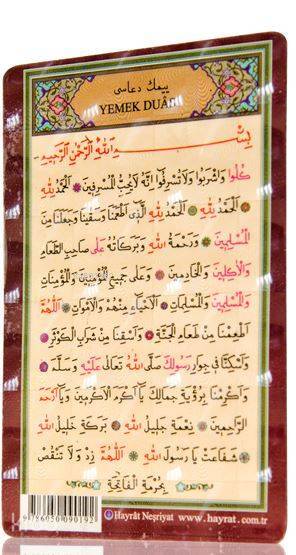 يمك دعاسى
YEMEK DUÂSI
بِسْمِ اللهِ الرَّحْمٰنِ الرَّحِيمِ
كُلُوا وَاشْرَبُوا وَلَا تُسْرِفُوا اِنَّهُ لَا يُحِبُّ الْمُسْرِفِينَ ❁ اَلْحَمْدُ لِلّٰهِ
اَلْحَمْدُ لِلّٰهِ ❁ اَلْحَمْدُ لِلّٰهِ الَّذِي اَطْعَمَنَا وَسَقَينَا وَجَعَلَنَا مِنَ
الْمُسْلِمِينَ ❁ وَرَحْمَةُ اللهِ وَبَرَكَاتُهُ عَلَى صَاحِبِ الطَّعَامِ
وَالْاٰكِلِينَ وَالْخَادِمِينَ ❁ وَعَلَى جَمِيعِ الْمُؤْمِنِينَ وَالْمُؤْمِنَاتِ
وَالْمُسْلِمِينَ وَالْمُسْلِمَاتِ ❁ اَلْاَحْيَاءِ مِنْهُمْ وَالْاَمْوَاتِ ❁ اَللّٰهُمَّ
اَطْعِمْنَا مِنْ طَعَامِ الْجَنَّةِ ❁ وَاَسْقِنَا مِنْ شَرَابِ الْكَوْثَرِ ❁
وَاَسْكِنَّا فِي جِوَارِ رَسُولِكَ صَلَّى اللهُ تَعَالَى عَلَيْهِ وَسَلَّمَ ❁
وَاَكْرِمْنَا بِرُؤْيَةِ جَمَالِكَ يَٓا اَكْرَمَ الْاَكْرَمِينَ وَيَٓا اَرْحَمَ
الرَّاحِمِينَ ❁ نِعْمَةِ جَلِيلُ اللهِ ❁ بَرَكَةِ خَلِيلُ اللهِ
شَفَاعَتْ يَا رَسُولَ اللهِ ❁ اَللّٰهُمَّ زِدْ وَلَا تَنْقُصْ
بِحُرْمَةِ الْفَاتِحَةِ
9786050090192
Hayrât Neşriyat www.hayrat.com.tr